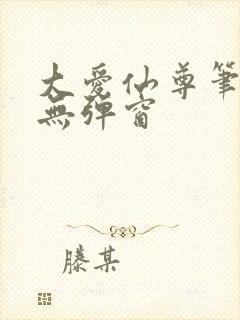 大愛仙尊筆
無彈窗
滕某